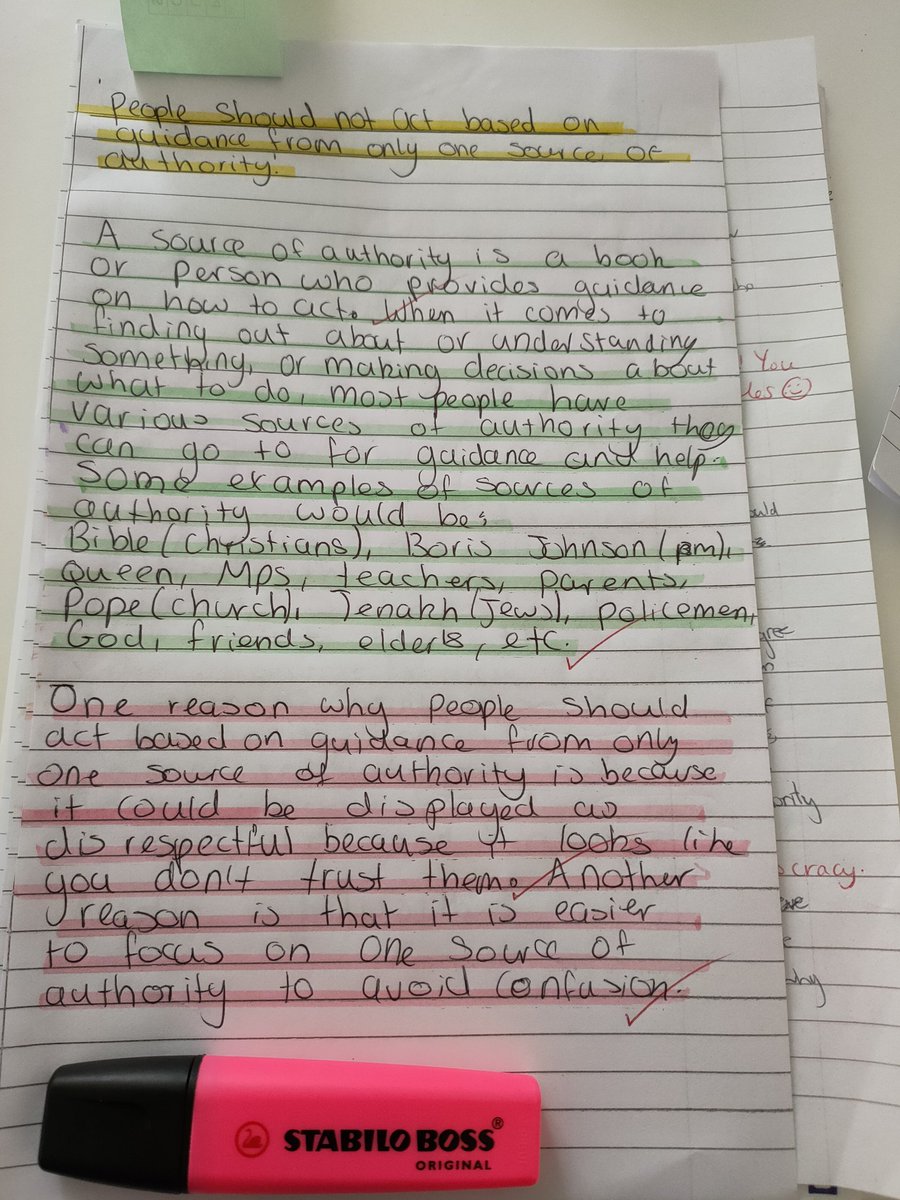 People should not act based on
guidance from only one source of
authority.
A source of authority is a book
or person who provides guidance
on how to act. When it comes to
finding out about or understanding
something, or making decisions about
what to do, most people have
various sources of authority they
can go to for guidance and help.
Some examples of sources of
authority would be:
Bible (Christians), Boris Johnson (pm),
Queen, MPs, teachers, parents,
Pope (church), Tenakh (Jews), policemen,
God, friends, elders, etc.
One reason why people should
act based on guidance from only
one source of authority is because
it could be displayed as
disrespectful because it looks like
you don't trust them. Another
reason is that it is easier
to focus on one source of
authority to avoid confusion.
You
cracy.
why
STABILO BOSS®
ORIGINAL